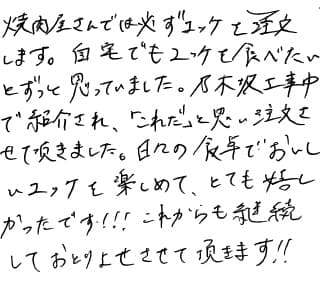 焼肉屋さんでは必ずユッケを注文
します。自宅でもユッケを食べたい
とずっと思っていました。乃木坂工事中
で紹介され、「これだ」と思い注文さ
せて頂きました。日々の食卓でおいし
いユッケを楽しめて、とても嬉し
かったです!!! これからも継続
しておとりよせさせて頂きます!!